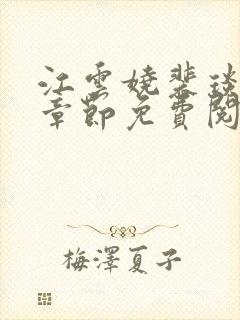 江雲嬈裴琰
章節免費閱
梅澤夏子